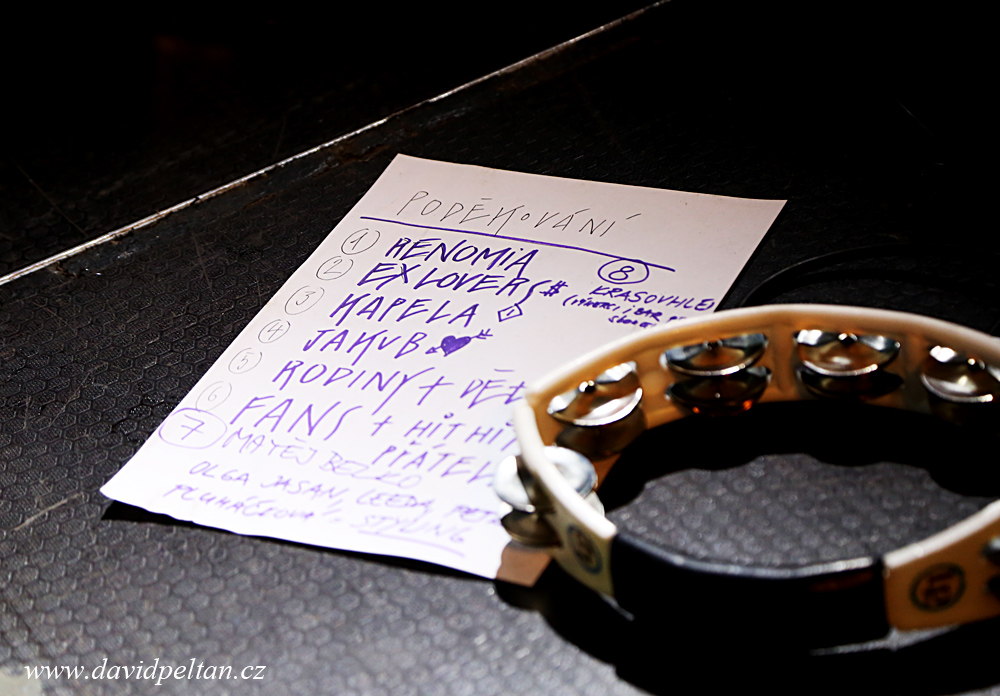 PODĚKOVÁNÍ
1 RENOMIA
2 EXLOVER $
3 KAPELA
4 JAKUB
5 RODINY + DĚT
6 FANS + HIT HIT
PŘÁTEL
7 MATĚJ
OLGA JASAN, LEEDA, PETR
PLUHÁČKOVÁ - STYLING
8 KRASOVHLEI
BAR
www.davidpeltan.cz